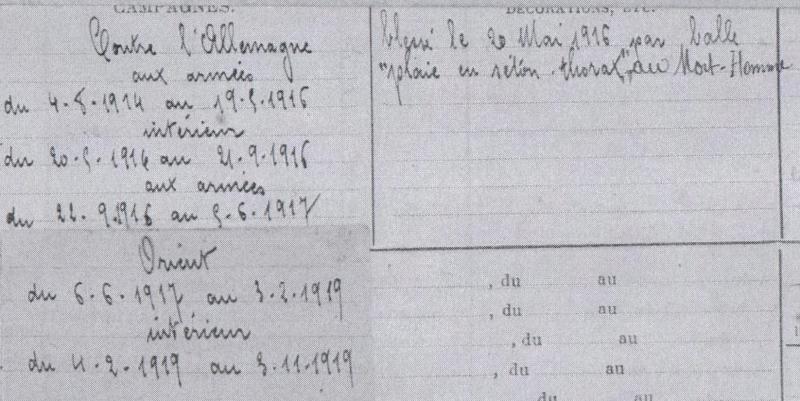 CAMPAGNES.
Contre l'Allemagne
aux armées
du 4-8-1914 au 19-5-1916
intérieur
du 20-5-1916 au 21-9-1916
aux armées
du 22-9-1916 au 5-6-1917
Orient
du 6-6-1917 au 3-2-1919
intérieur
du 4-2-1919 au 3-11-1919
DÉCORATIONS, ETC.
blessé le 20 Mai 1916 par balle
"plaie en séton thorax" au Mort-Homme
, du au
, du au
, du au
, du au
du au